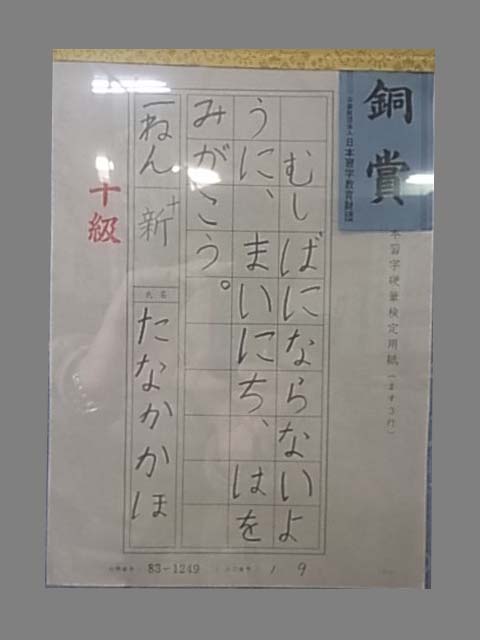 銅賞
公益財団法人 日本習字教育財団
本習字硬筆検定用紙(ます3行)
むしばにならないよ
うに、まいにち、はを
みがこう。
一ねん 新十
氏名 たなかかほ
十級
83-1249
19